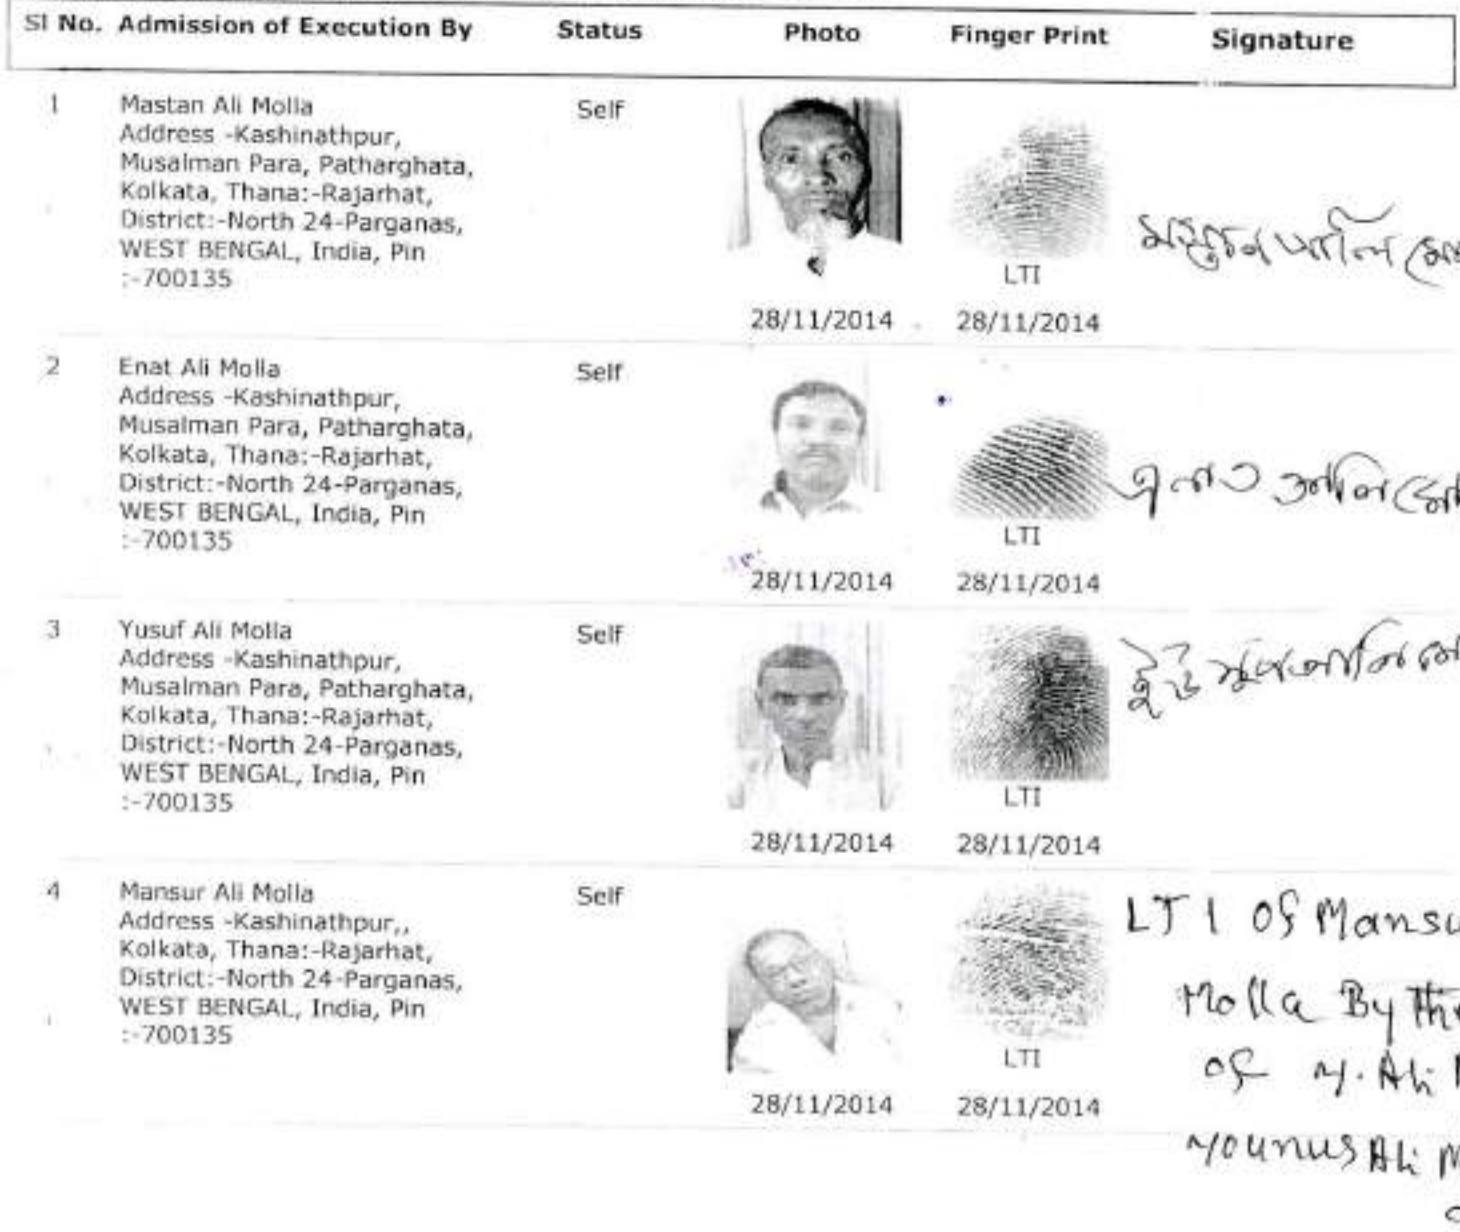 Sl No. Admission of Execution By Status Photo Finger Print Signature
1 Mastan Ali Molla Self
Address -Kashinathpur,
Musalman Para, Patharghata,
Kolkata, Thana:-Rajarhat,
District:-North 24-Parganas,
WEST BENGAL, India, Pin
:-700135
LTI
28/11/2014 28/11/2014
আলি
2 Enat Ali Molla Self
Address -Kashinathpur,
Musalman Para, Patharghata,
Kolkata, Thana:-Rajarhat,
District:-North 24-Parganas,
WEST BENGAL, India, Pin
:-700135
LTI
28/11/2014 28/11/2014
এনাত আলি
3 Yusuf Ali Molla Self
Address -Kashinathpur,
Musalman Para, Patharghata,
Kolkata, Thana:-Rajarhat,
District:-North 24-Parganas,
WEST BENGAL, India, Pin
:-700135
LTI
28/11/2014 28/11/2014
4 Mansur Ali Molla Self
Address -Kashinathpur,,
Kolkata, Thana:-Rajarhat,
District:-North 24-Parganas,
WEST BENGAL, India, Pin
:-700135
LTI
28/11/2014 28/11/2014
LTI Of Mansu
Molla By the
of Y. Ali M
Younus Ali M